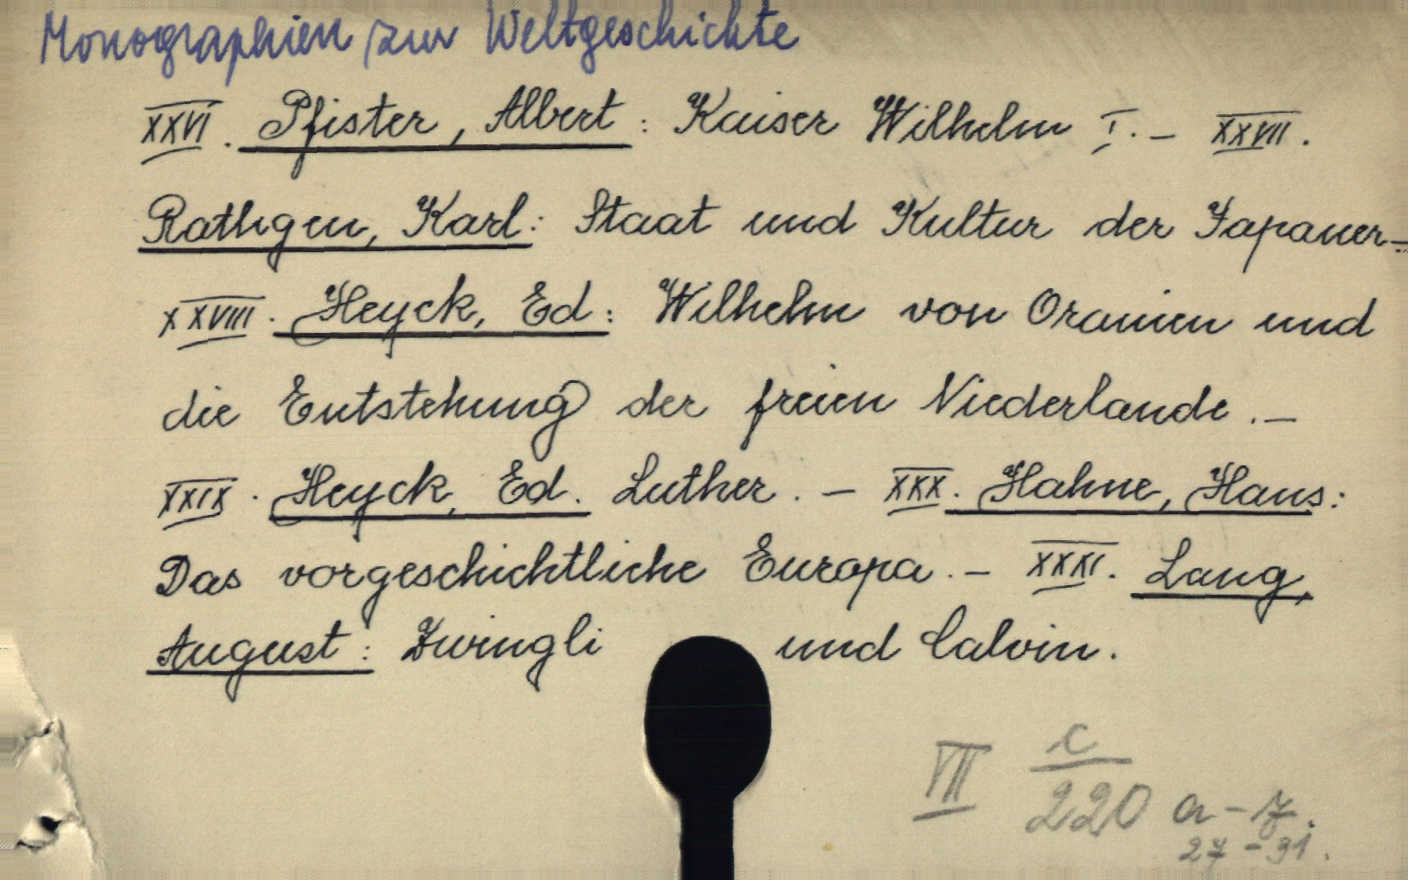 Monographien zur Weltgeschichte
XXVI. Pfister, Albert: Kaiser Wilhelm I. – XXVII.
Rathgen, Karl: Staat und Kultur der Japaner –
XXVIII. Heyck, Ed: Wilhelm von Oranien und
die Entstehung der freien Niederlande. –
XXIX. Heyck, Ed. Luther. – XXX. Hahne, Hans:
Das vorgeschichtliche Europa. – XXXI. Lang,
August: Zwingli und Calvin.
VII c/220 a – z.
27 – 31.